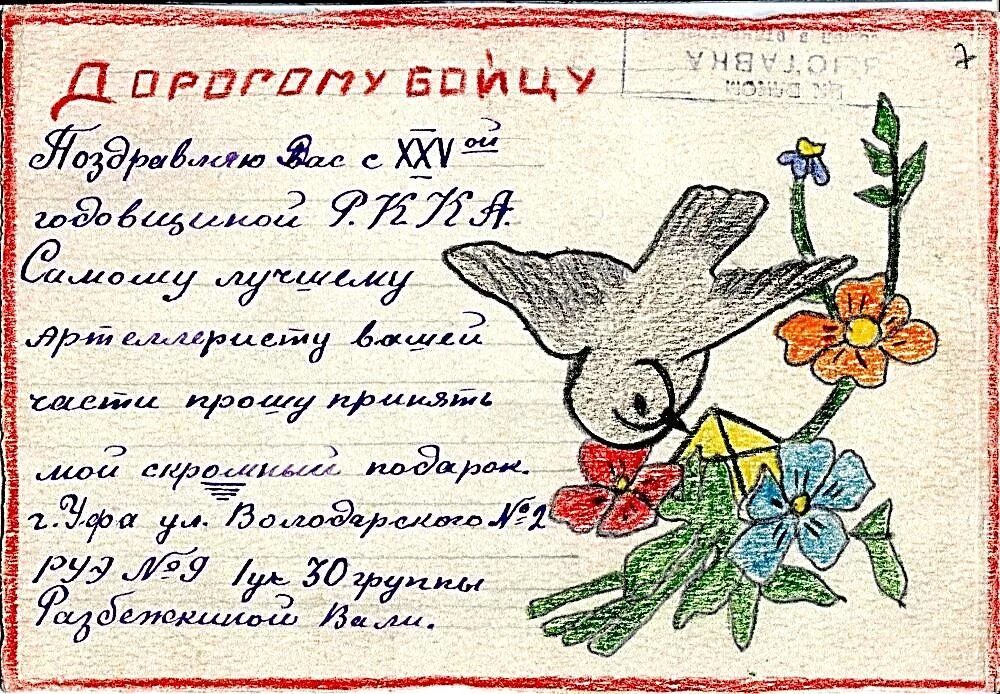 ДОРОГОМУ БОЙЦУ
Поздравляю Вас с XXV ой
годовщиной Р.К К А.
Самому лучшему
артеллеристу вашей
части прошу принять
мой скромный подарок.
г. Уфа ул. Володарского № 2
РУЭ № 9 1 уч 30 группы
Разбежкиной Вали.
7
ВЫСТАВКА